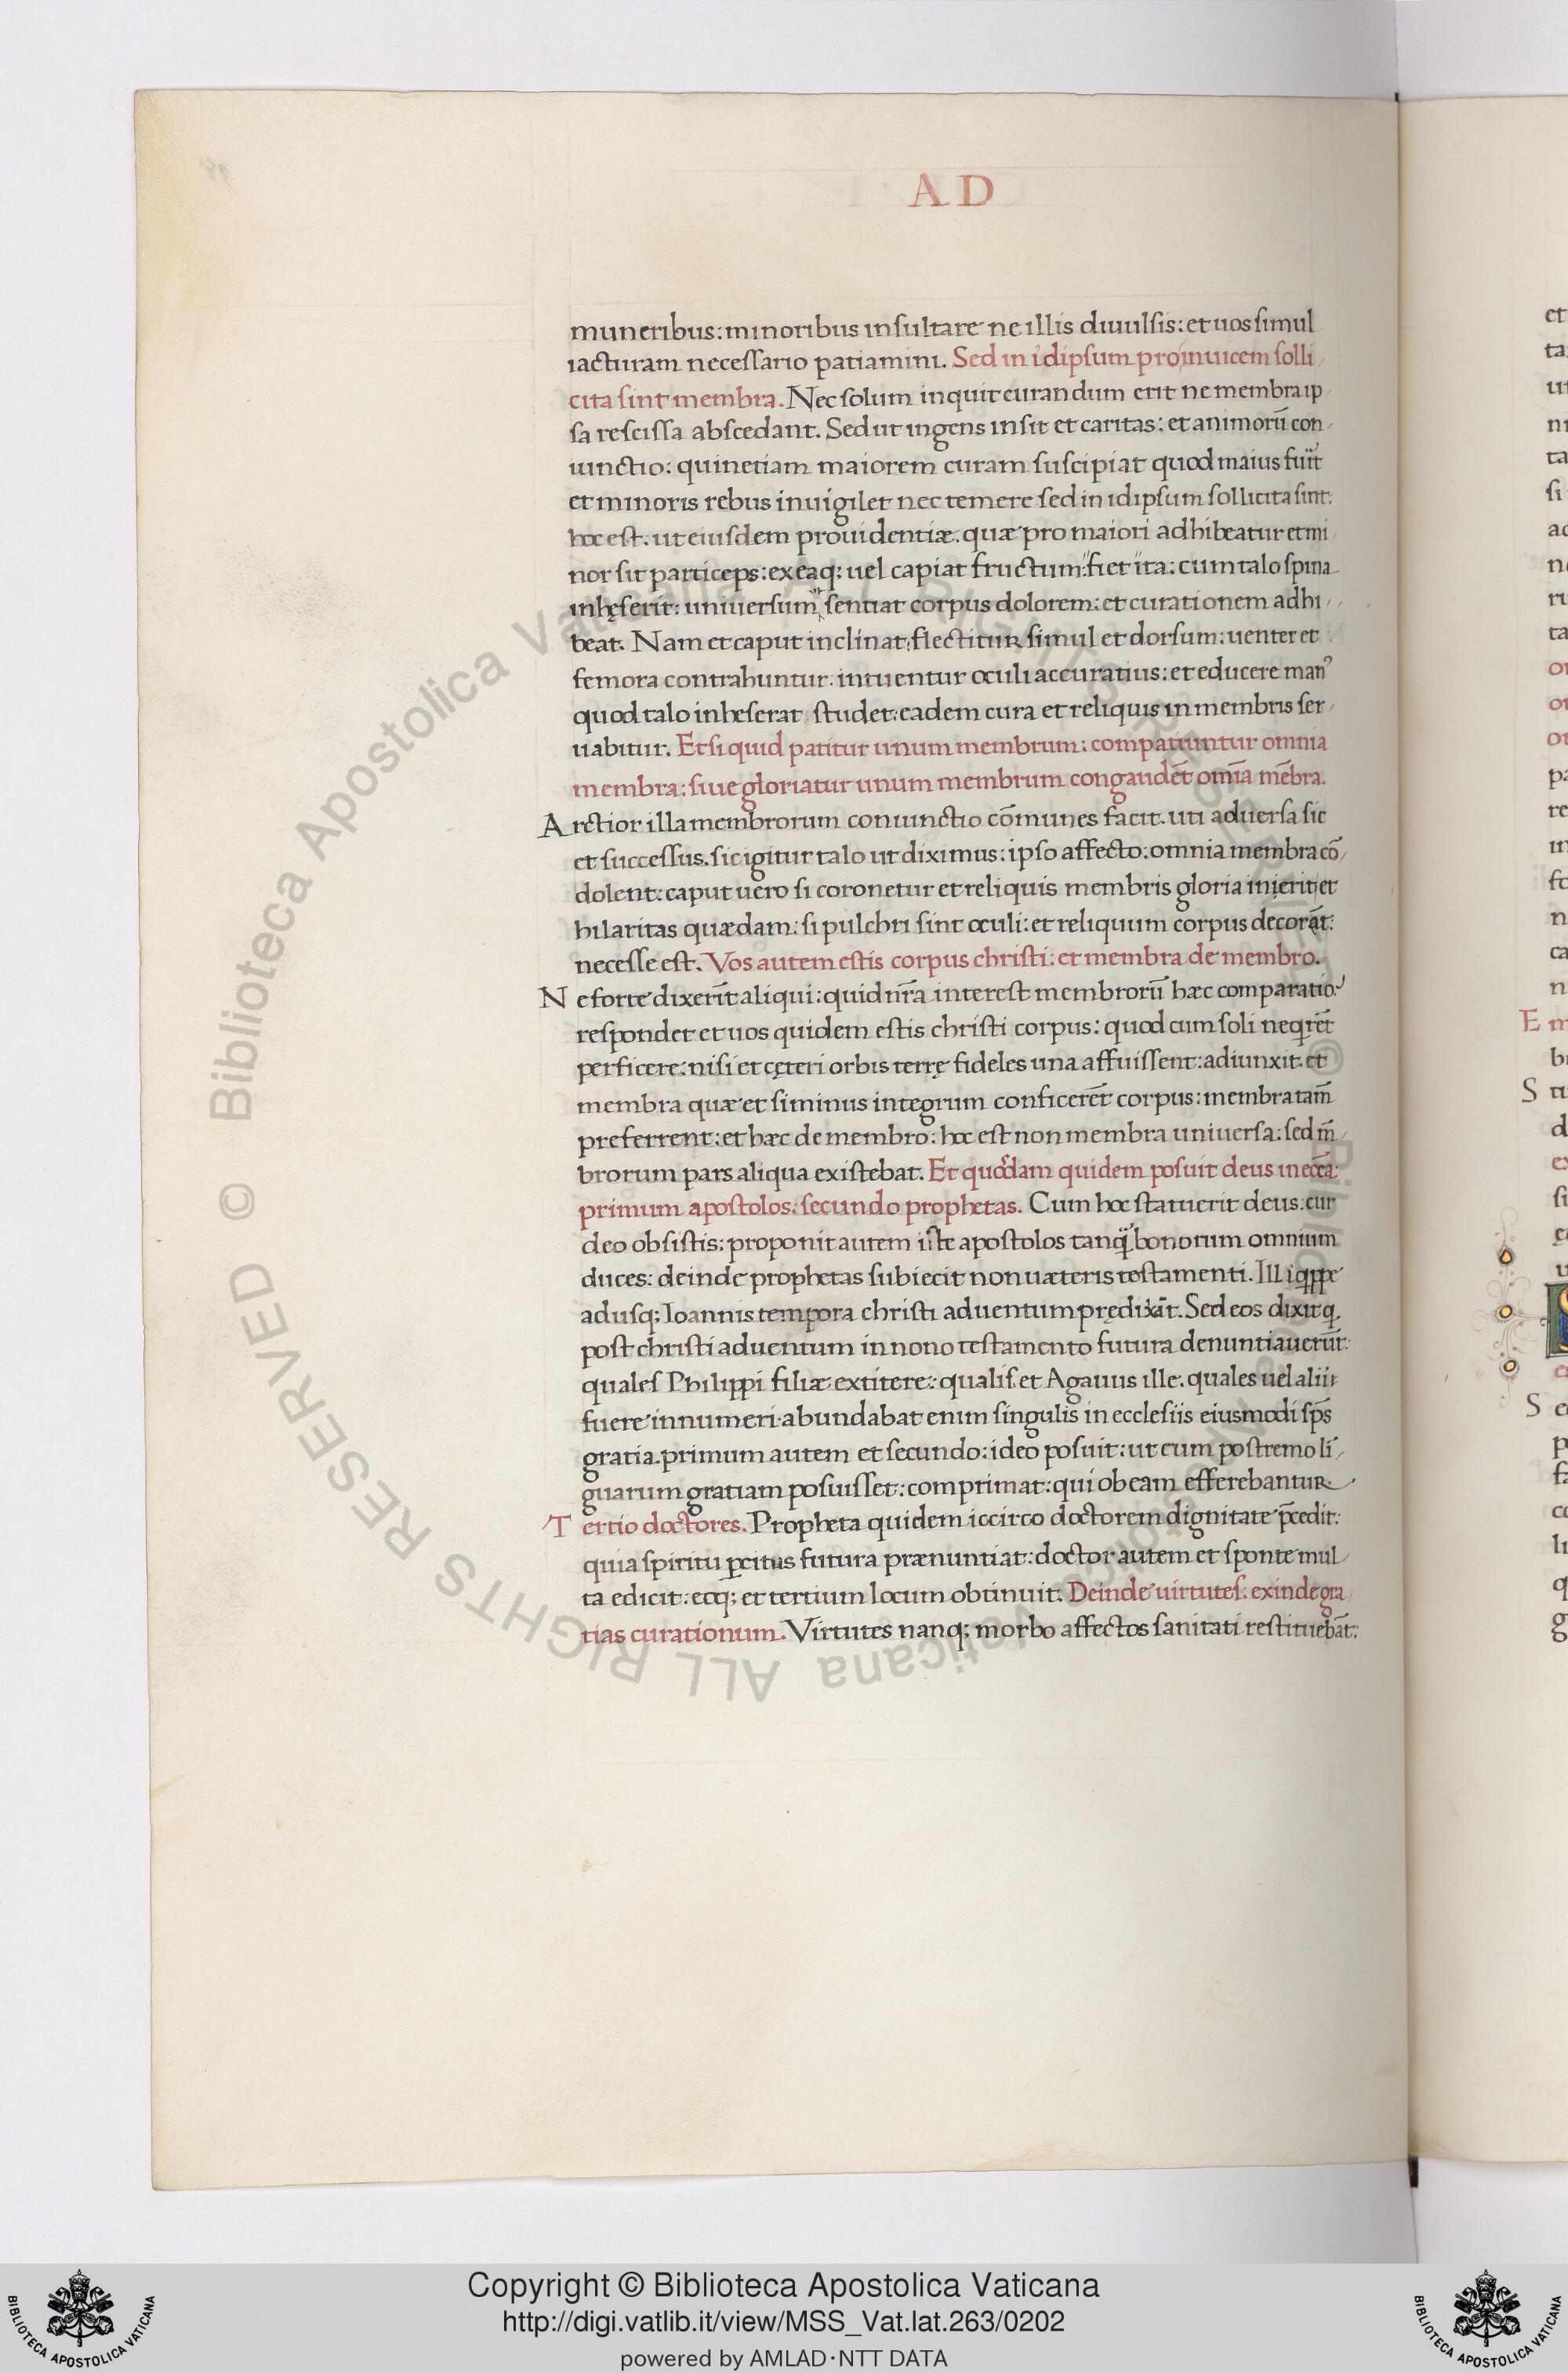 AD
muneribus: minoribus insultare ne illis diuulsis: et uos simul
iacturam necessario patiamini. Sed in idipsum pro inuicem solli
cita sint membra. Nec solum inquit curandum erit ne membra ip
sa rescissa abscedant. Sed ut ingens insit et caritas: et animorū con
iunctio: quinetiam maiorem curam suscipiat quod maius fuīt
et minoris rebus inuigilet nec temere sed in idipsum sollicita sint:
hoc est. ut eiusdem prouidentiæ. quæ pro maiori adhibeatur et mi
nor sit particeps: ex eaq; uel capiat fructum: fiet ita: cum talo spina
inhęserit: uniuersum sentiat corpus dolorem: et curationem adhi
beat. Nam et caput inclinat: flectitur simul et dorsum: uenter et
femora contrahuntur: intuentur oculi accuratius: et educere man9
quod talo inheserat studet: eadem cura et reliquis in membris ser
uabitur. Et si quid patitur unum membrum: compatiuntur omnia
membra: siue gloriatur unum membrum congaudēt omīa mēbra.
Arctior illa membrorum coniunctio cōmunes facit. uti aduersa sic
et successus. sic igitur talo ut diximus: ipso affecto: omnia membra cō
dolent: caput uero si coronetur et reliquis membris gloria inierit et
hilaritas quædam: si pulchri sint oculi: et reliquum corpus decorāt:
necesse est. Vos autem estis corpus christi: et membra de membro.
Ne forte dixerīt aliqui: quid nr̄a interest membrorū hæc comparatio?
respondet et uos quidem estis christi corpus: quod cum soli neqrēt
perficere: nisi et cęteri orbis terrę fideles una affuissent: adiunxit. et
membra quæ et si minus integrum conficerēt corpus: membra tam̄
preferrent: et hæc de membro: hoc est non membra uniuersa: sed m̄
brorum pars aliqua existebat. Et quosdam quidem posuit deus in ecc̄a:
primum apostolos: secundo prophetas. Cum hoc statuerit deus: cur
deo obsistis: proponit autem iste apostolos tanq̄ bonorum omnium
duces: deinde prophetas subiecit non uæteris testamenti. Illi qppe
adusq; Ioannis tempora christi aduentum prędixāt. Sed eos dixit q
post christi aduentum in nono testamento futura denuntiauerūt:
quales Philippi filiæ extitere: qualis et Agauus ille. quales uel alii
fuere innumeri abundabat enim singulis in ecclesiis eiusmodi sp̄s
gratia. primum autem et secundo: ideo posuit: ut cum postremo li
guarum gratiam posuisset: comprimat: qui ob eam efferebantur.
Tertio doctores. Propheta quidem iccirco doctorem dignitate p̄cedit:
quia spiritu ꝑcitus futura prænuntiat: doctor autem et sponte mul
ta edicit: eoq; et tertium locum obtinuit. Deinde uirtutes: exinde gra
tias curationum. Virtutes nanq; morbo affectos sanitati restituebāt:
Copyright © Biblioteca Apostolica Vaticana
http://digi.vatlib.it/view/MSS_Vat.lat.263/0202
powered by AMLAD·NTT DATA